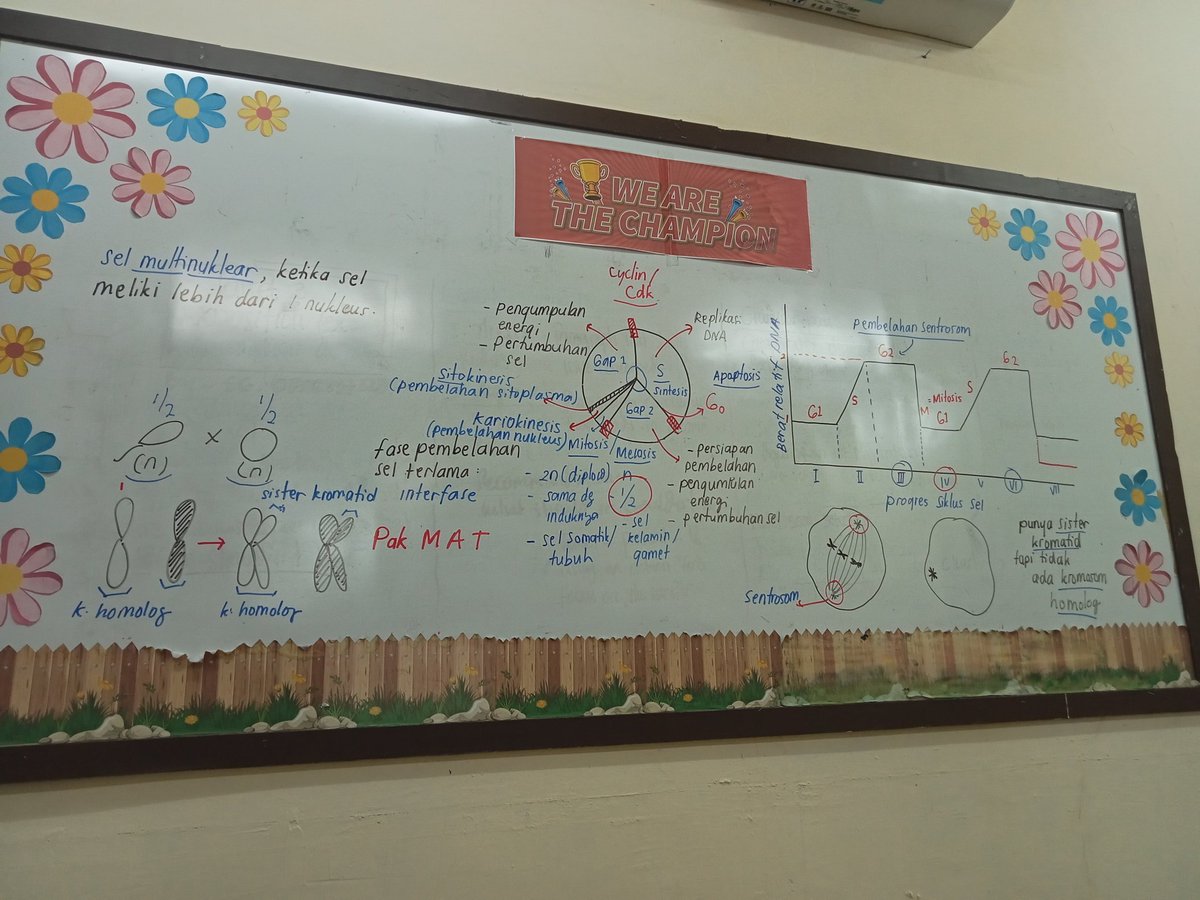 WE ARE
THE CHAMPION
sel multinuklear, ketika sel
meliki lebih dari 1 nukleus.
1/2
1/2
x
(n)
(n)
sister kromatid
k. homolog
k. homolog
Pak MAT
Cyclin/
Cdk
- Pengumpulan
energi
- Pertumbuhan
sel
Replikasi
DNA
Gap 1
S
sintesis
Gap 2
Apoptosis
G0
Sitokinesis
(pembelahan sitoplasma)
Kariokinesis
(pembelahan nukleus)
fase pembelahan
sel terlama :
interfase
Mitosis/
Meiosis
- 2n (diploid)
- sama dg
induknya
- sel somatik/
tubuh
n
- 1/2
- sel
kelamin/
gamet
- persiapan
pembelahan
- pengumpulan
energi
- pertumbuhan sel
Berat relatif DNA
pembelahan sentrosom
G1
S
G2
M = Mitosis
G1
S
G2
I II III IV V VI VII
progres siklus sel
Sentrosom
punya sister
kromatid
tapi tidak
ada kromosom
homolog